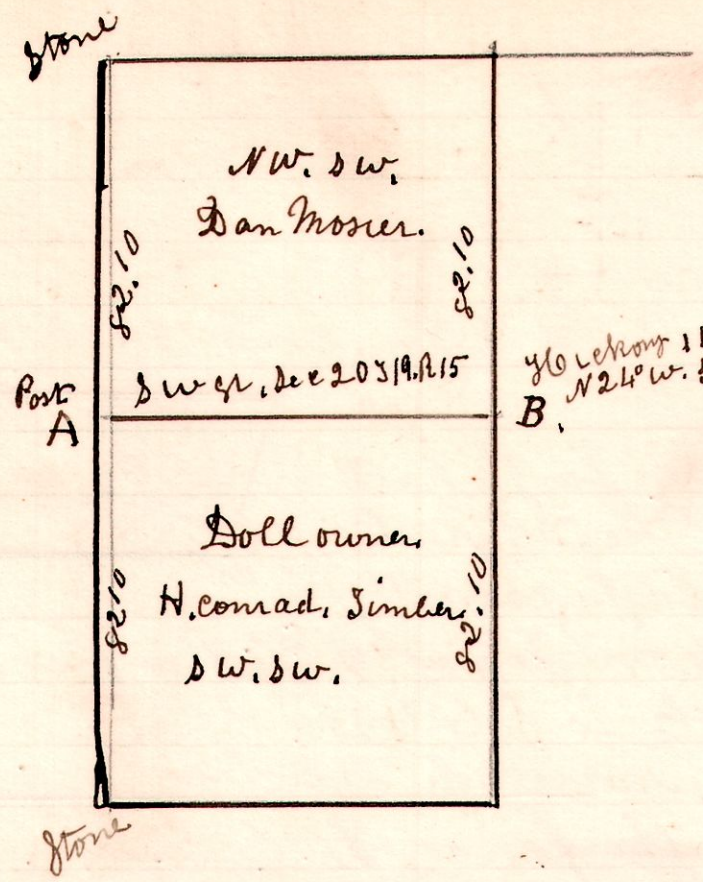 Stone
NW. SW.
Dan Mosier.
82.10
82.10
SW qr, Sec 20 T19. R15
Post
A
B.
Hickory
N 24° W.
Doll owner
H. Conrad. Timber.
82.10
82.10
SW. SW.
Stone